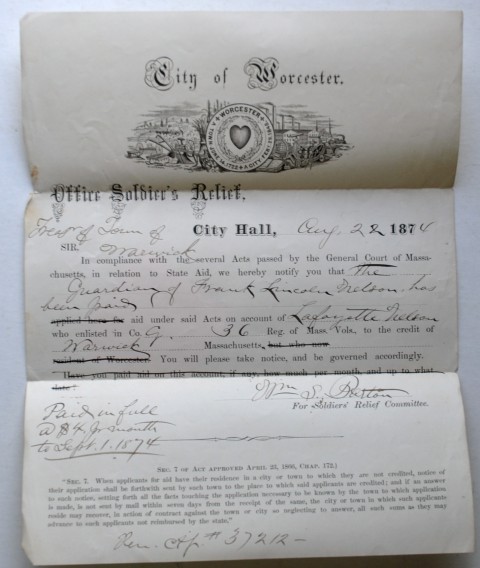 City of Worcester.
WORCESTER
Office Soldier's Relief,
Treas of Town of City Hall, Aug 22 1874
SIR. Warwick
In compliance with the several Acts passed by the General Court of Massa-
chusetts, in relation to State Aid, we hereby notify you that the
Guardian of Frank Lincoln Nelson has
been paid
applied here for aid under said Acts on account of Lafayette Nelson
who enlisted in Co. G. 36 Reg. of Mass. Vols., to the credit of
Warwick Massachusetts, but who now
resided at Worcester. You will please take notice, and be governed accordingly.
Have you paid aid on this account, if any, how much per month, and up to what
date?
Wm S. Barton
For Soldiers' Relief Committee.
Paid in full
a $4 month
to Sept. 1. 1874
SEC. 7 OF ACT APPROVED APRIL 23, 1866, CHAP. 172.)
"SEC. 7. When applicants for aid have their residence in a city or town to which they are not credited, notice of
their application shall be forthwith sent by such town to the place in which said applicants are credited; and if an answer
to such notice, setting forth all the facts touching the application necessary to be known by the town in which application
is made, is not sent by mail within seven days from the receipt of the same, the city or town in which such applicants
reside may recover, in action of contract against the town or city so neglecting to answer, all such sums as they may
advance to such applicants not reimbursed by the state."
37212